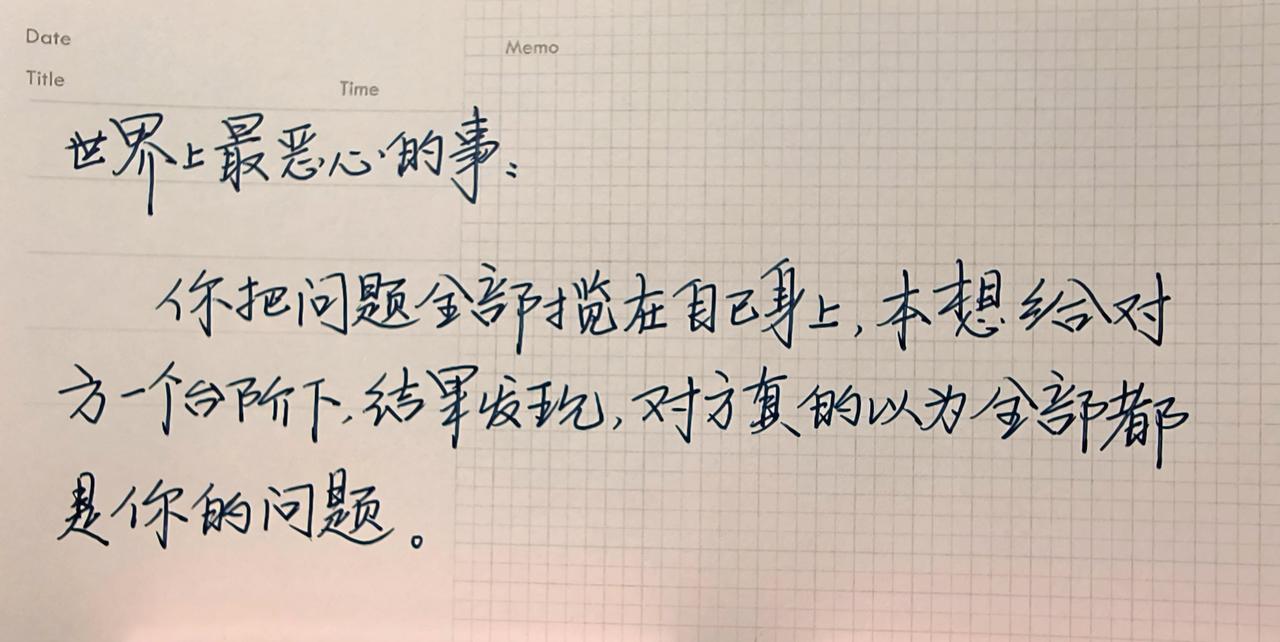 Date
Memo
Title
Time
世界上最恶心的事：
你把问题全部揽在自己身上,本想给对
方一个台阶下,结果发现,对方真的以为全部都
是你的问题。